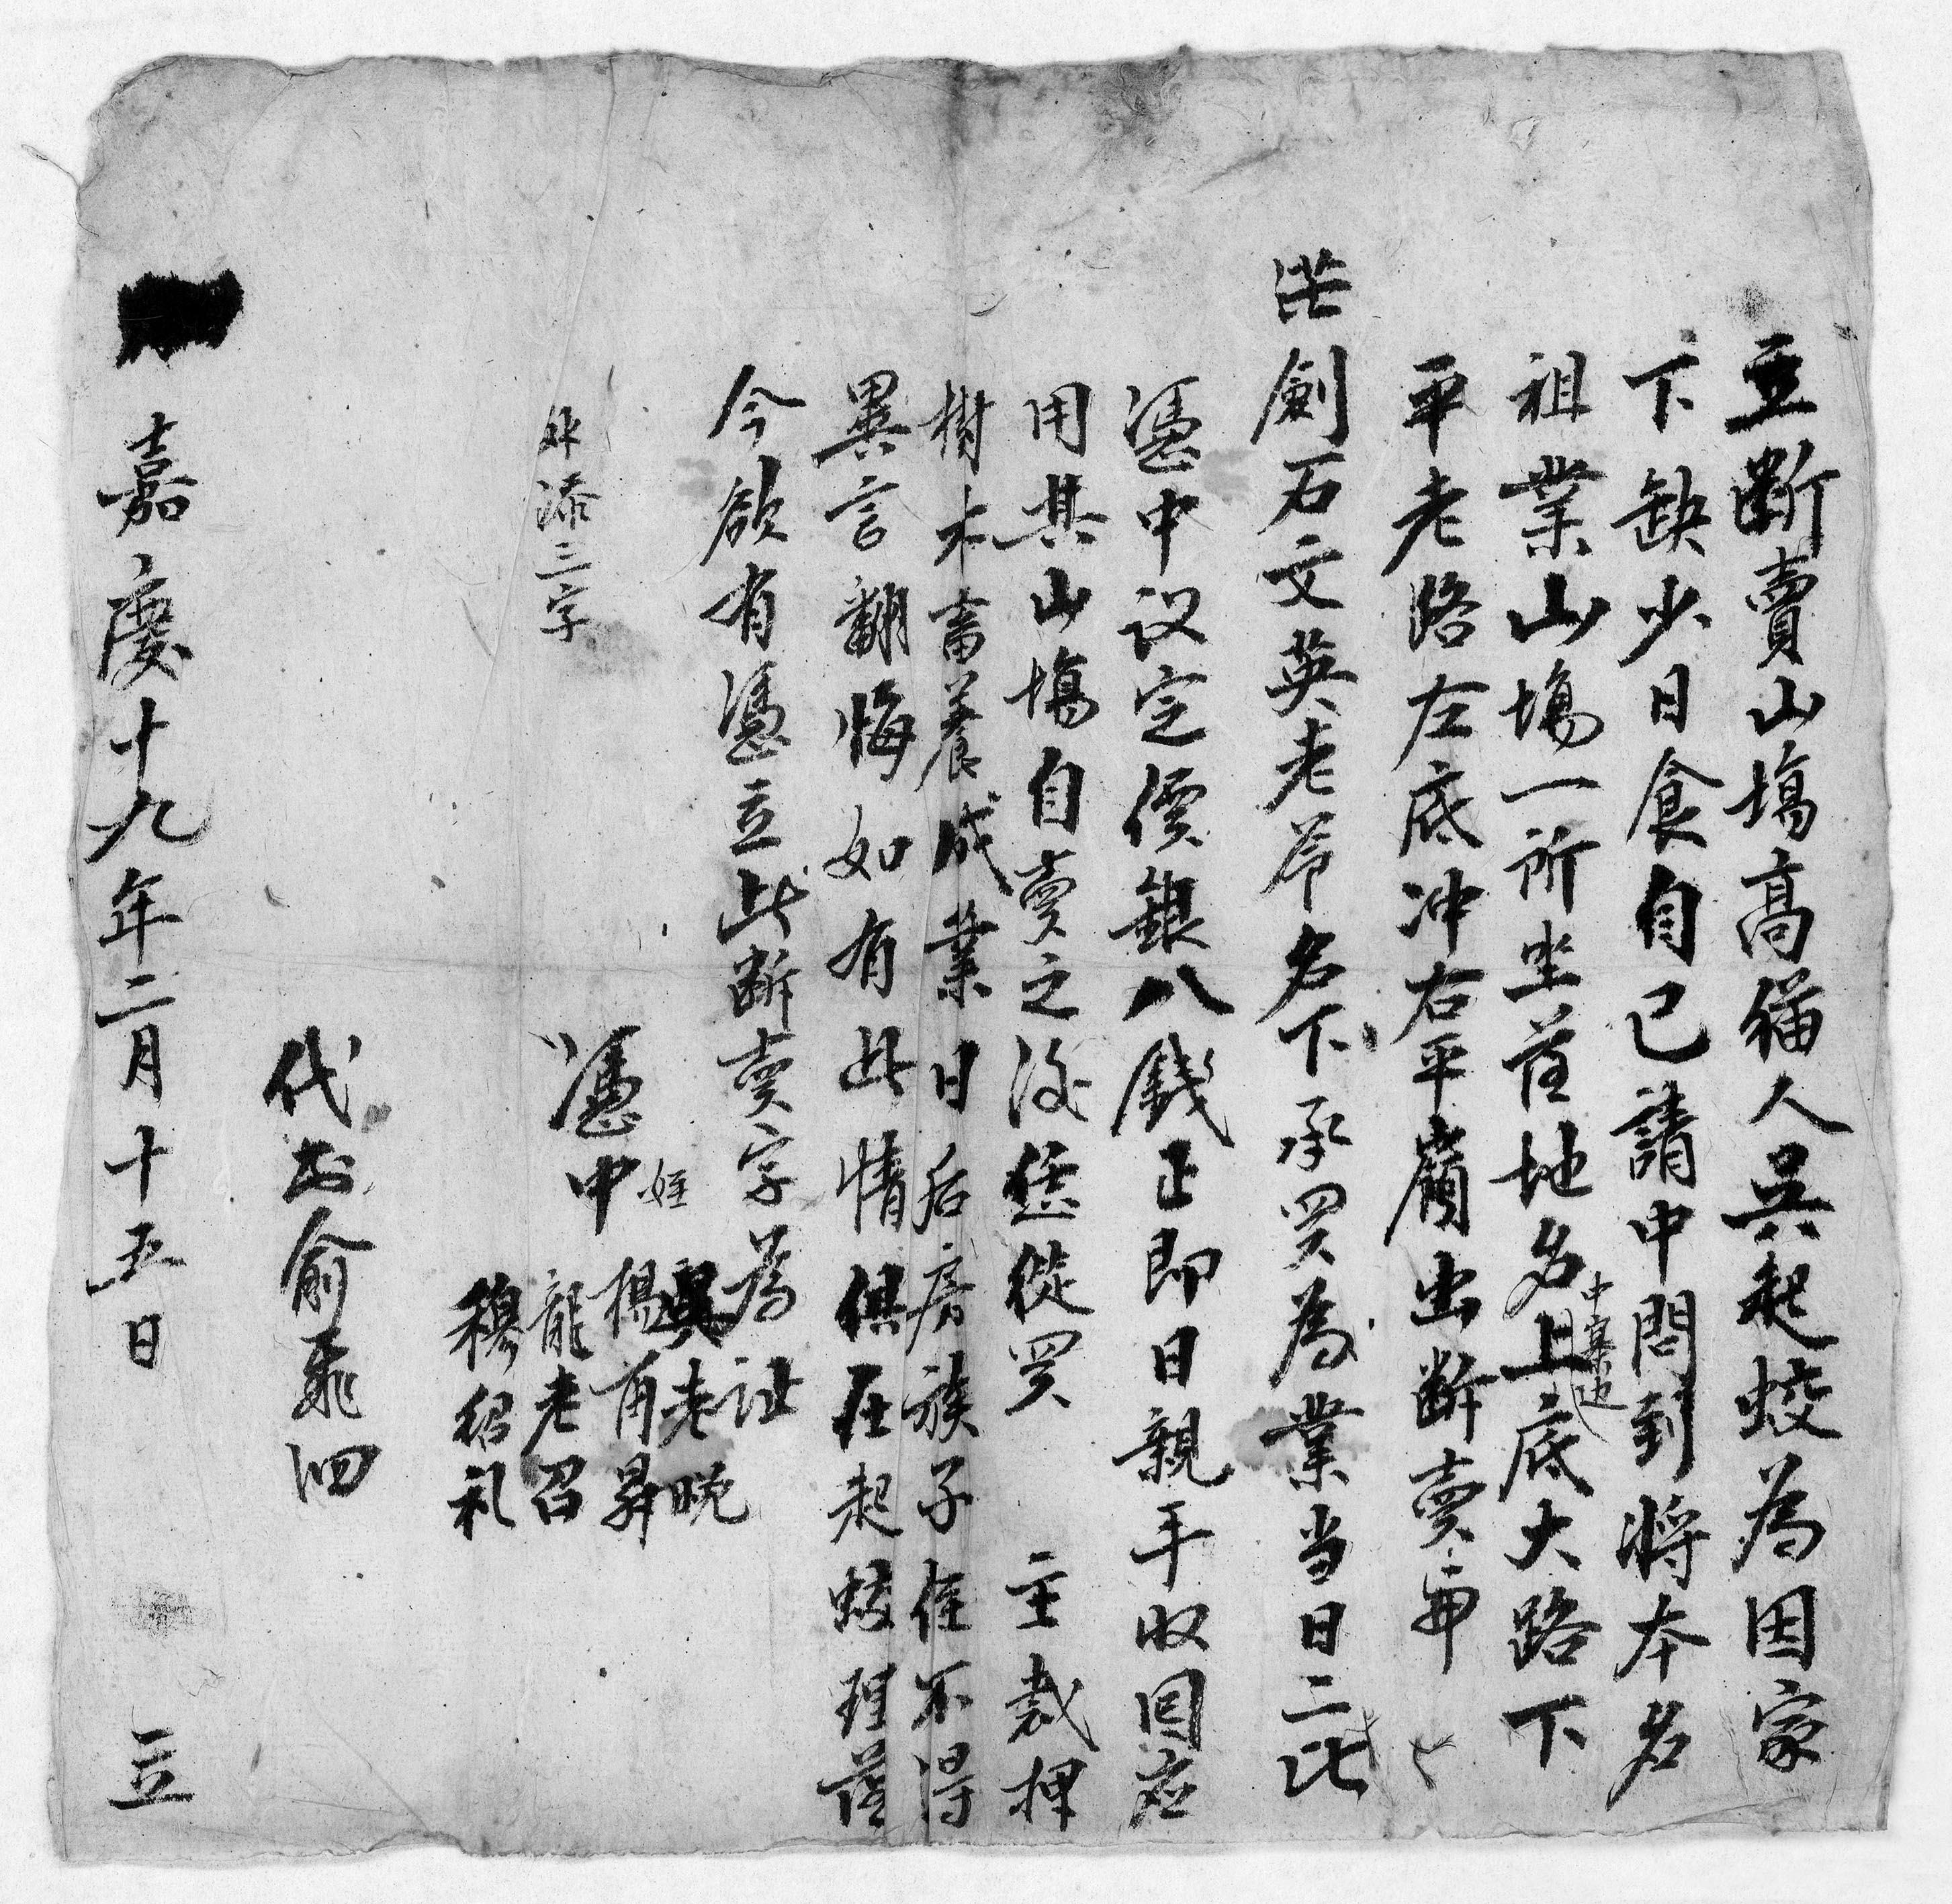 立断賣山塲高猫人吳起蛟為因家
下缺少日食自己請中問到将本名
祖業山塲一所坐落地名上底大路下
中其山
平老路左底冲右平嶺出断賣與
茫劍石文英老爷名下承買為業当日二比
憑中议定價銀八錢正即日親手收回应
用其山塲自賣之後恁從買主裁押
樹木畜養成業日后房族子侄不得
異言翻悔如有此情俱在起蛟理落
今欲有憑立此断賣字為证
外添三字
憑中
姪吳老晚
楊甫昇
龍老召
穆紹礼
代书俞飛四
嘉慶十九年二月十五日 立